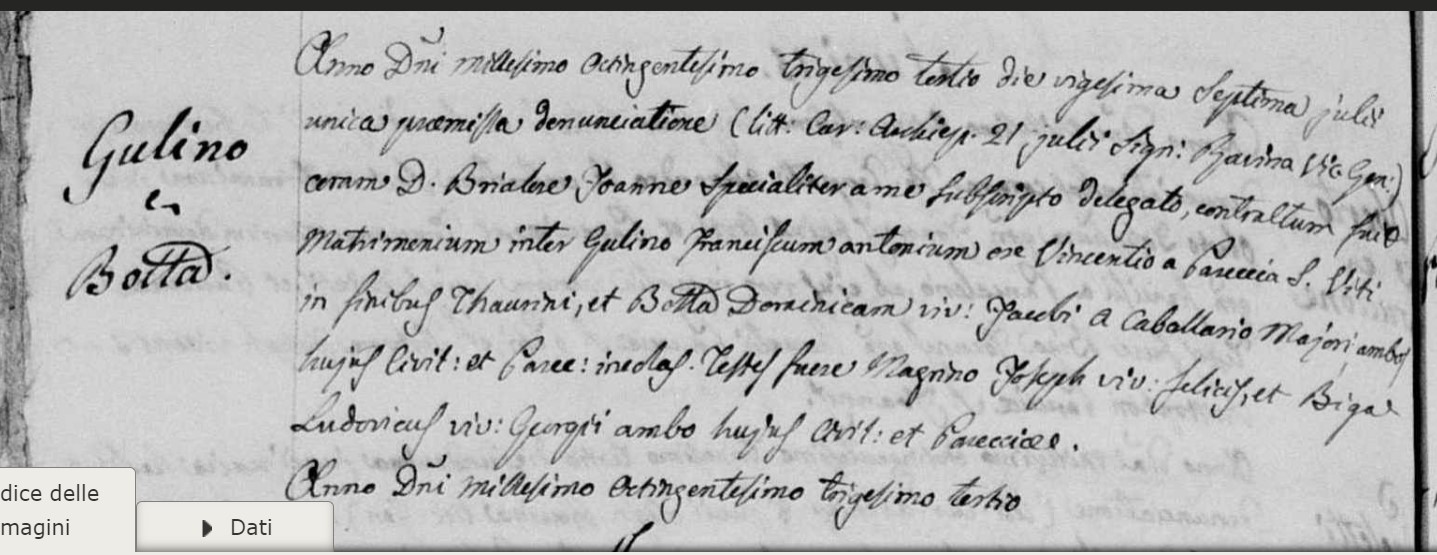 Gulino
et
Botta.
Anno Dñi millesimo octingentesimo trigesimo tertio die vigesima septima julii
unica præmissa denunciatione (litt: Cur: Archiep. 21 julii sign: Vic. Gen:)
coram D. Joanne specialiter a me subscripto delegato, contractum fuit
Matrimonium inter Gulino Franciscum antonium ex Vincentio a Parecia S. Viti
in finibus Thaurini, et Botta Dominicam viv: Jacobi a Caballario Majori ambos
hujus Civit: et Parec: incolas. Testes fuere Magnino Joseph viv: felicis, et Biga
Ludovicus viv: Georgii ambo hujus Civit: et Pareciae.
Anno Dñi millesimo octingentesimo trigesimo tertio
dice delle
magini
Dati